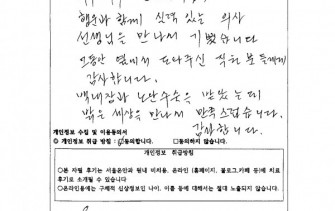 행운과 함께 실력 있는 의사
선생님을 만나서 기뻤습니다
오랫동안 옆에서 도와주신 직원 분들께
감사합니다.
백내장과 노안수술을 받았는데
밝은 세상을 만나서 만족스럽습니다.
감사합니다.
개인정보 수집 및 이용동의서
◎ 개인정보 취급 방침 : 동의합니다. □동의하지 않습니다.
개인정보 취급방침
○본 자필 후기는 서울온안과 원내 비치용, 온라인 (홈페이지, 블로그,카페 등)에 치료
후기로 소개될 수 있습니다
○온라인용에는 구체적 신상정보인 나이, 이름 등에 대해서는 절대 노출되지 않습니다.